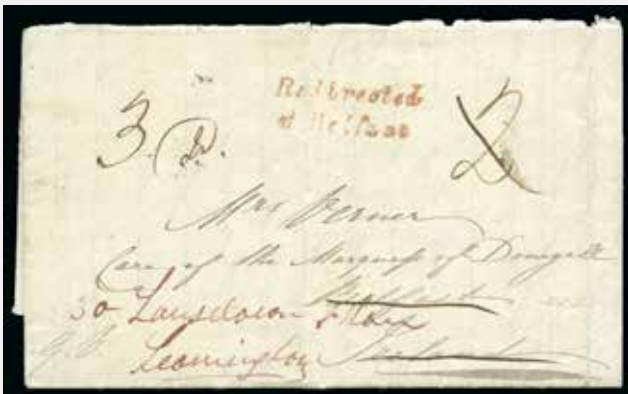 Redirected
at Belfast
3 D. 2
Mrs Verner
Care of the Marquess of Donegall
Belfast
30 Lansdown Place
Leamington Ireland